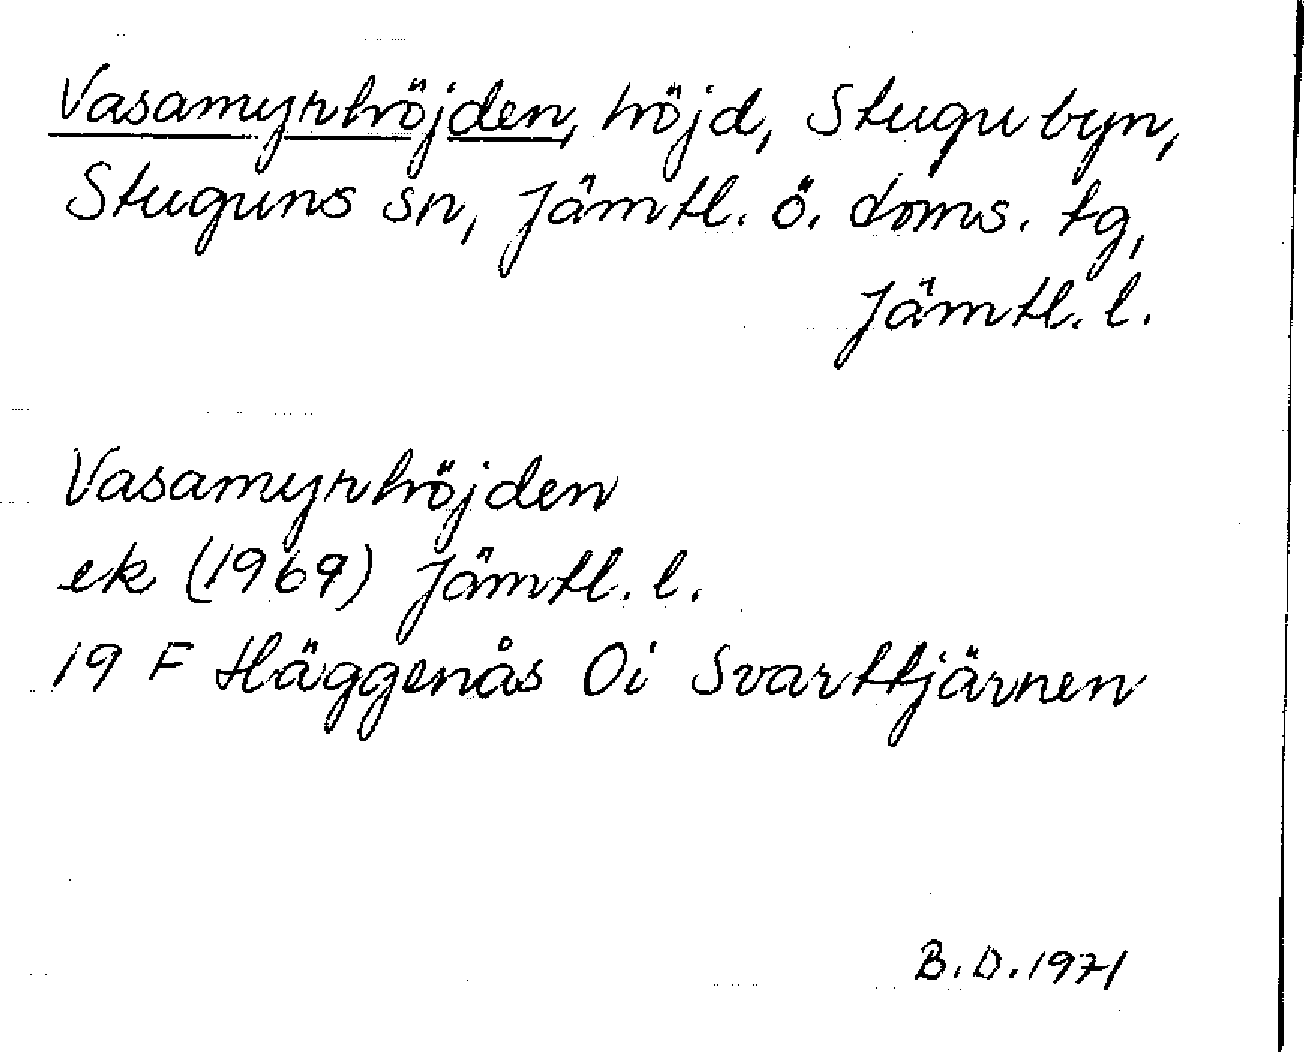 Vasamyrhöjden, höjd, Stugubyn,
Stuguns sn, Jämtl. ö. doms. tg,
Jämtl. l.
Vasamyrhöjden
ek (1969) Jämtl. l.
19 F Häggenås Oi Svarttjärnen
B.D. 1971